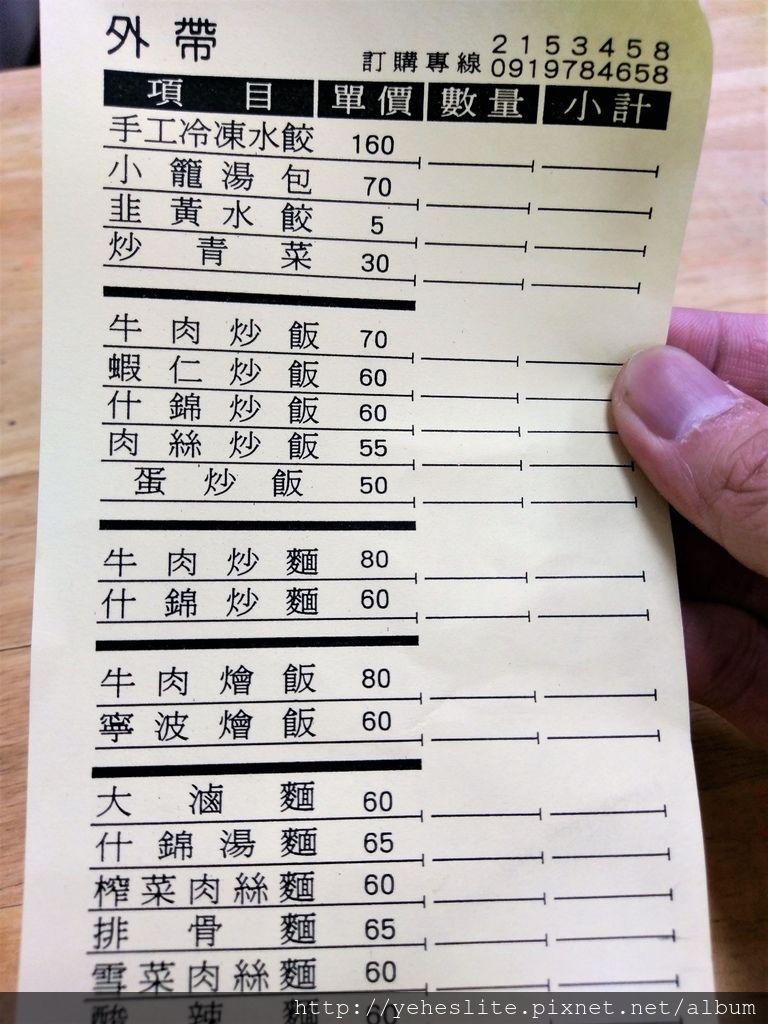 外帶
2153458
訂購專線 0919784658
項目 單價 數量 小計
手工冷凍水餃 160
小籠湯包 70
韭黃水餃 5
炒青菜 30
牛肉炒飯 70
蝦仁炒飯 60
什錦炒飯 60
肉絲炒飯 55
蛋炒飯 50
牛肉炒麵 80
什錦炒麵 60
牛肉燴飯 80
寧波燴飯 60
大滷麵 60
什錦湯麵 65
榨菜肉絲麵 60
排骨麵 65
雪菜肉絲麵 60
酸辣麵 60
http://yeheslite.pixnet.net/album